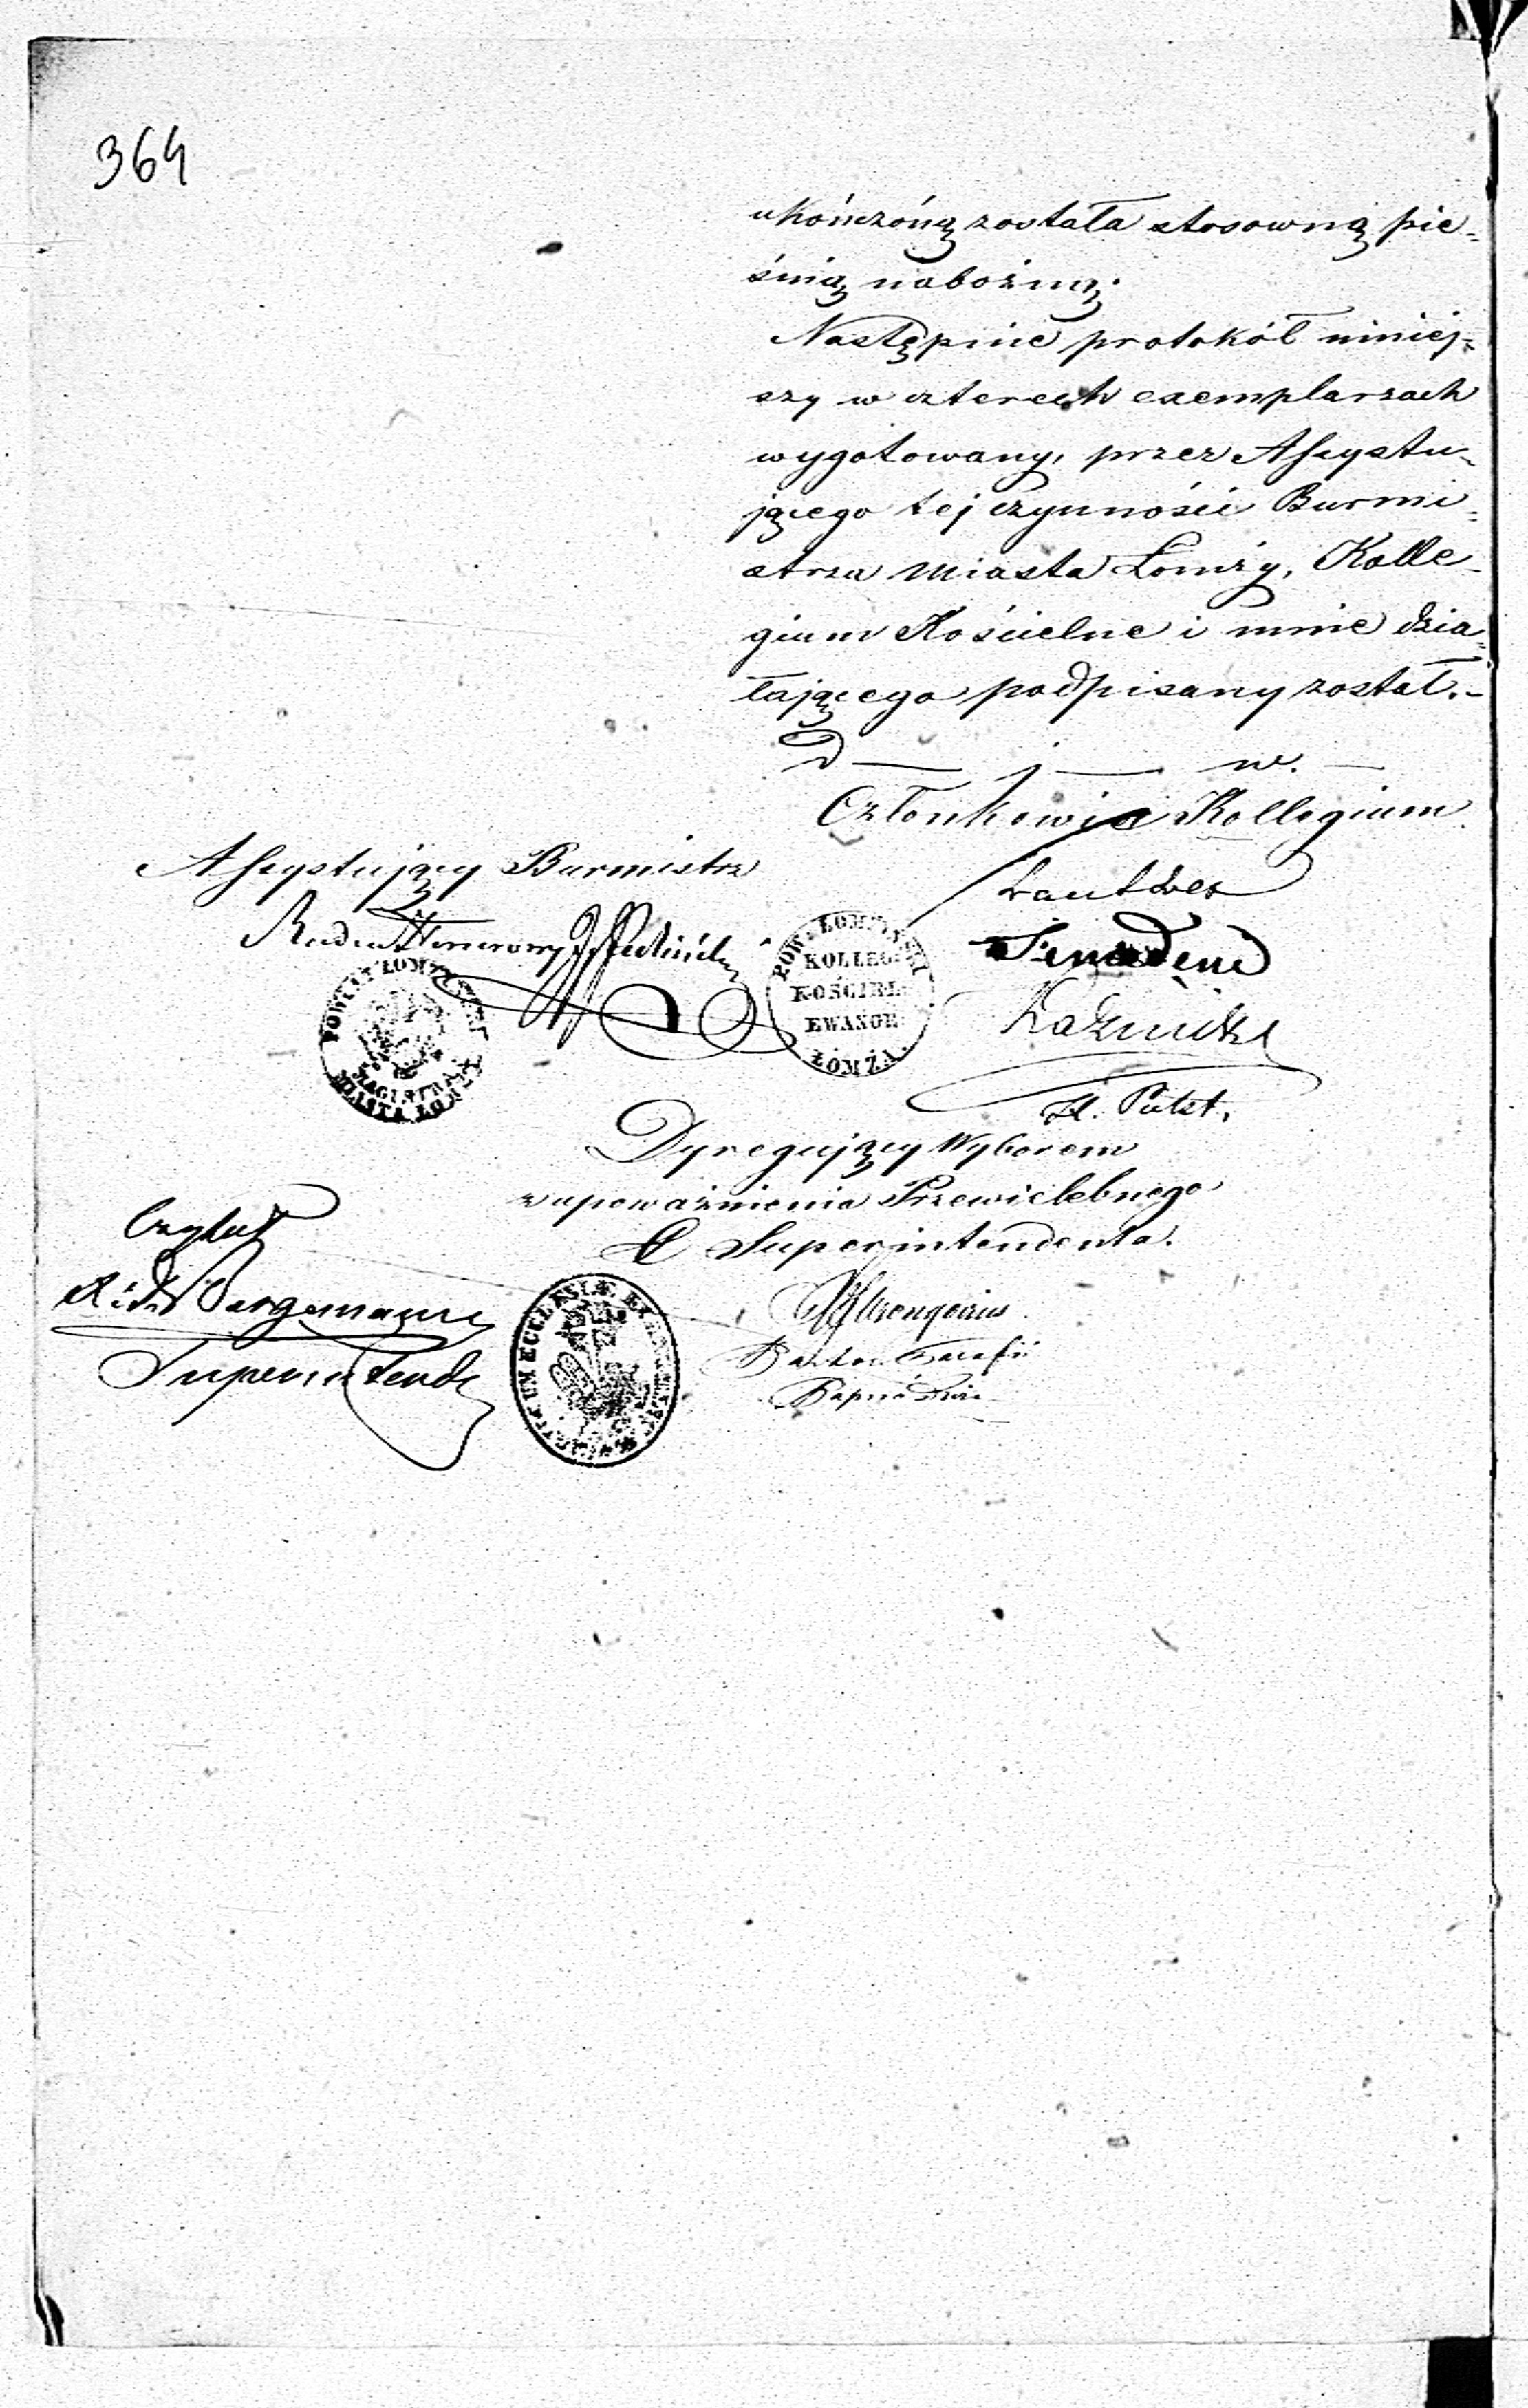 364
ukończoną została stosowną pie-
śnią nabożną.
Następnie protokół niniej-
szy w czterech exemplarzach
wygotowany, przez Assystu-
jącego tej czynności Burmi-
strza Miasta Łomży, Kolle-
gium Kościelne i mnie dzia-
łającego podpisany został.-
D — j — w. —
Członkowie Kollegium
Assystujący Burmistrz
Radca Honorowy
POWIAT ŁOMŻYŃSKI
MAGISTRAT
MIASTA ŁOMŻY
POW. ŁOMŻYŃSKI
KOLLEG:
KOŚCIEL:
EWANGE:
ŁOMŻA.
Dyregujący Wyborem
z upoważnienia Przewielebnego
Superintendenta.
Czytał
Superintend
Pastor Parafii